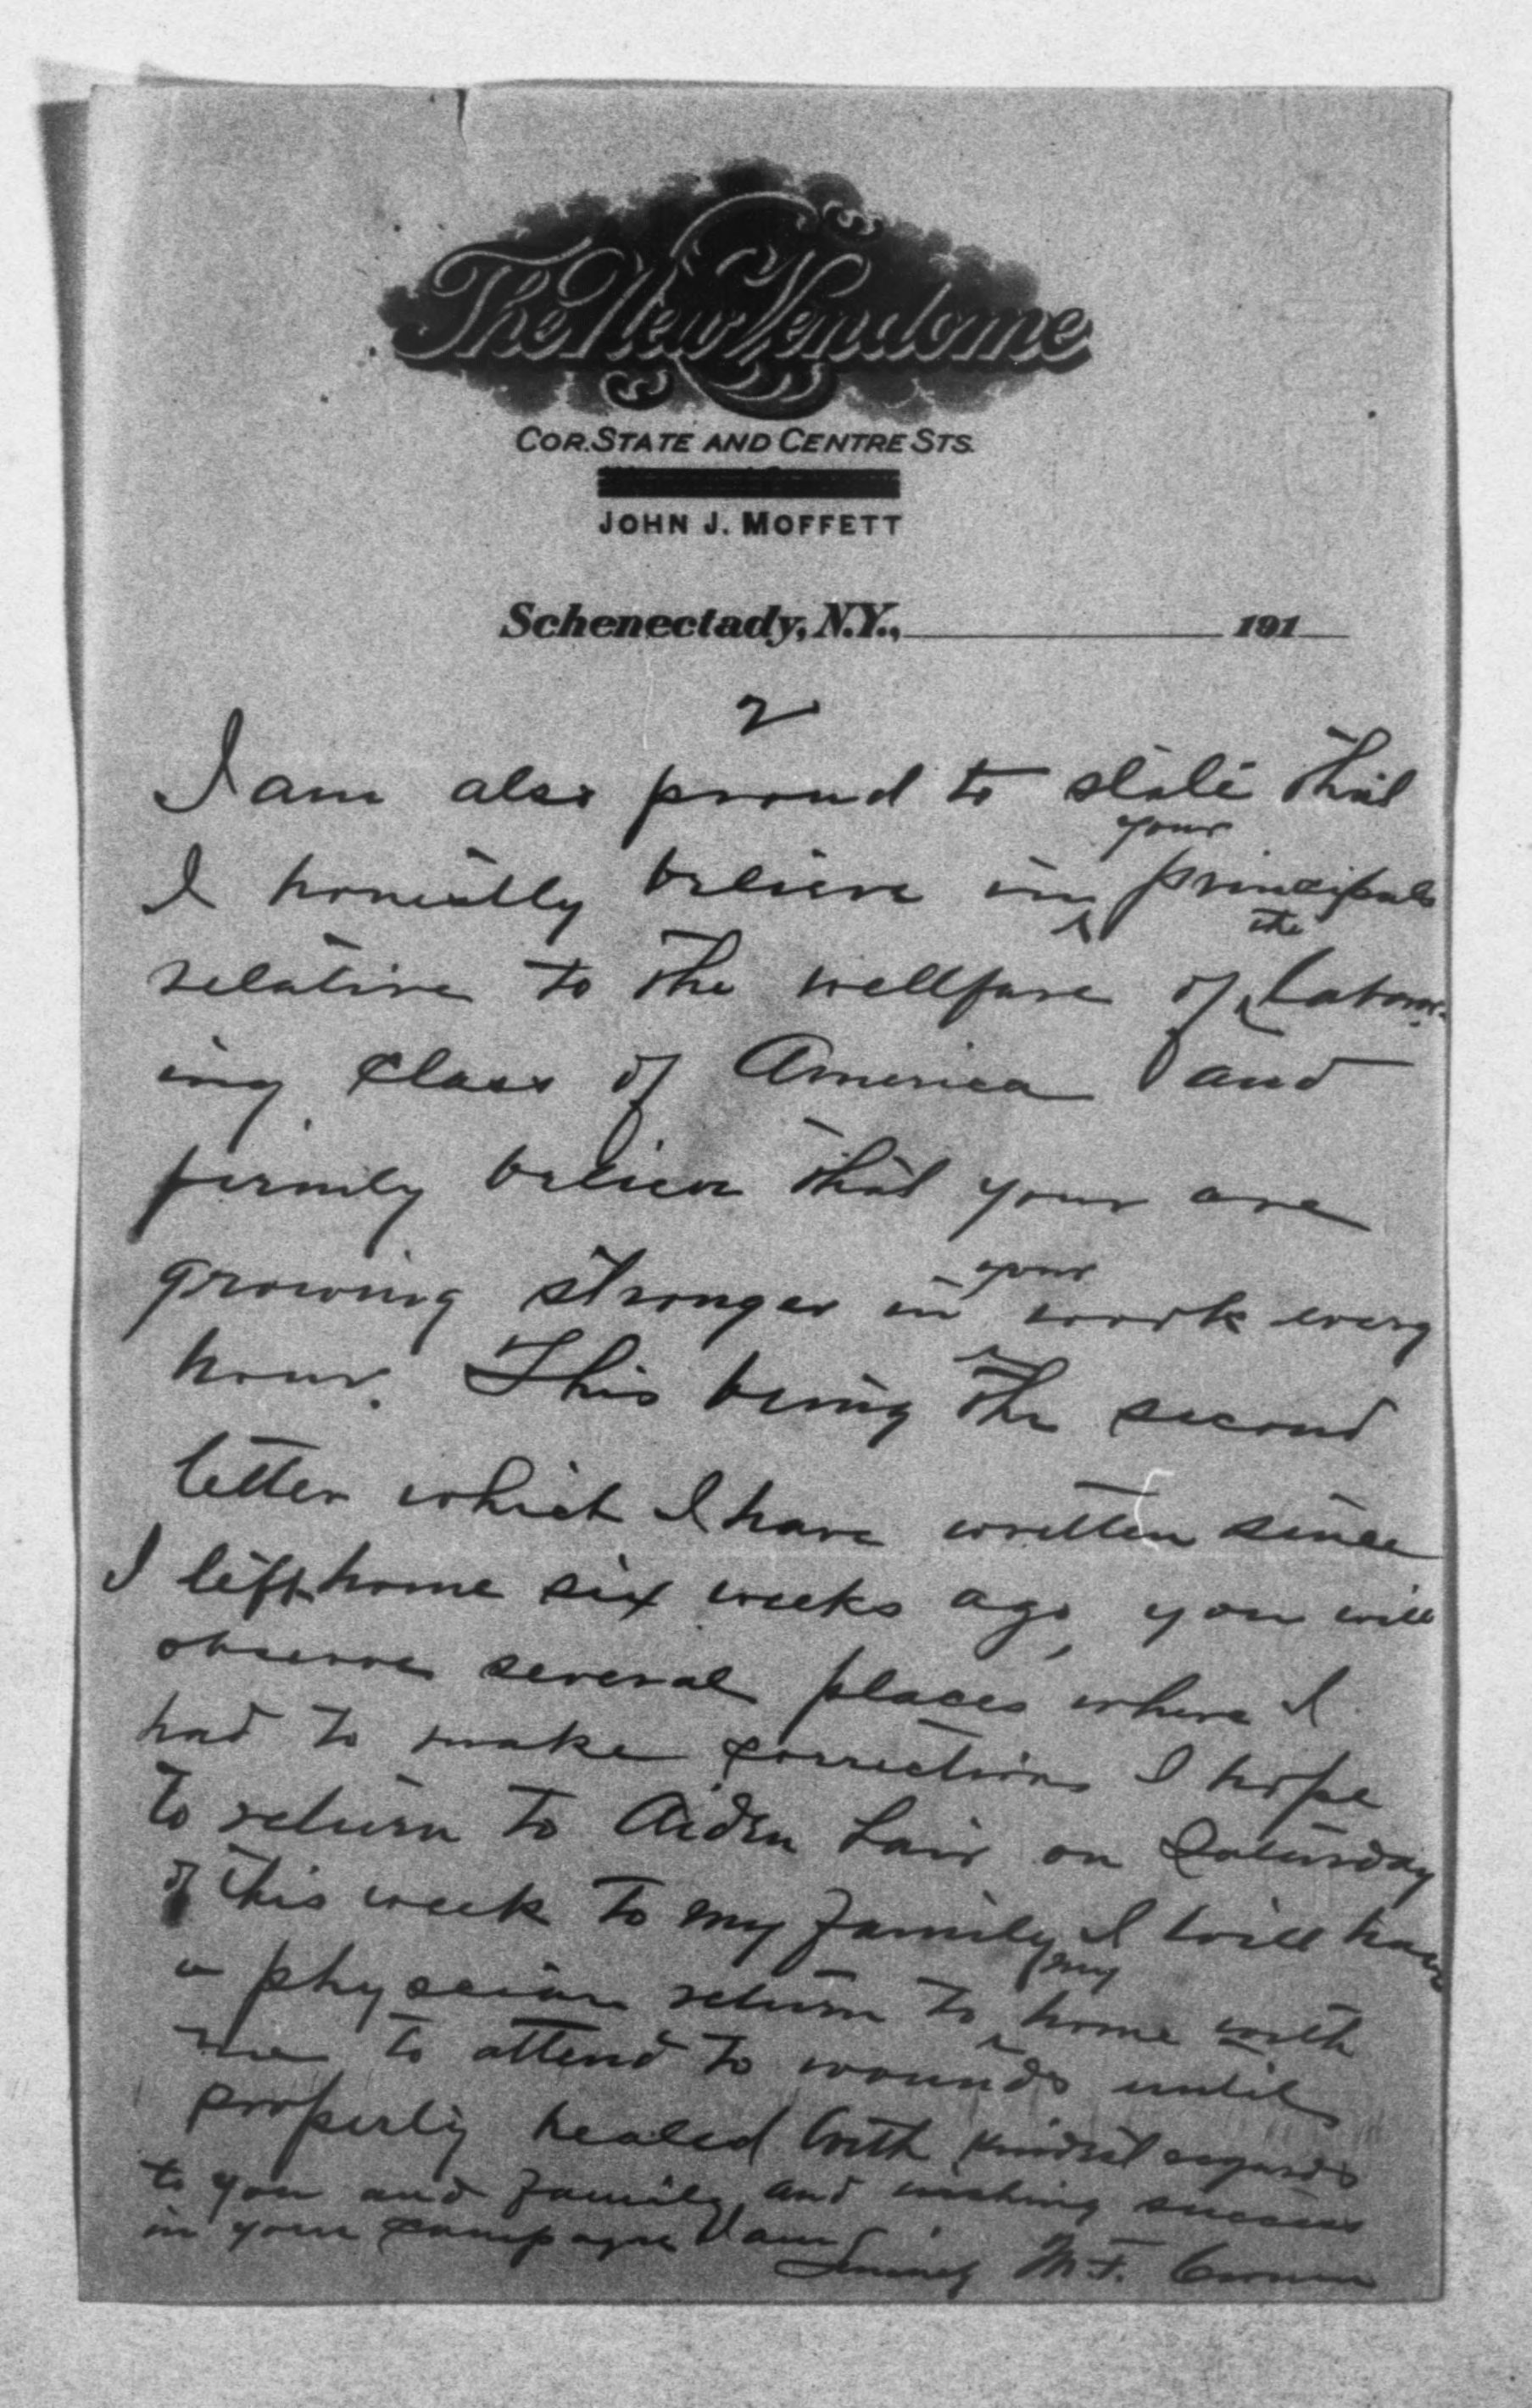 The New Vendome
COR. STATE AND CENTRE STS.
JOHN J. MOFFETT
Schenectady, N.Y., 191
2
I am also proud to state that
your
I honestly believe in principals
the
relative to the wellfare of Labour-
ing class of America and
firmly believe that your are
your
growing stronger in work every
hour. This being the second
letter which I have written since
I left home six weeks ago, you will
observe several places where I
had to make corrections I hope
to return to Aiden Lair on Saturday
of this week to my family I will have
my
a physician return to home with
me to attend to wounds until
properly healed With kindest regards
to you and family, and wishing success
in your campagne I am
M.F. Cronin